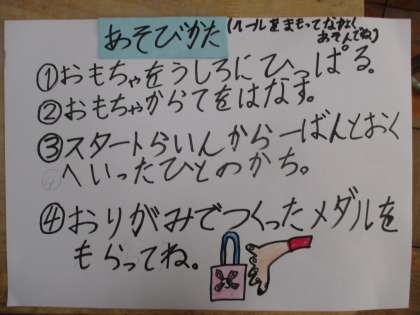 あそびかた
(ルールをまもってなかよく
あそんでね)
①おもちゃをうしろにひっぱる。
②おもちゃからてをはなす。
③スタートらいんから一ばんとおく
へいったひとのかち。
④おりがみでつくったメダルを
もらってね。